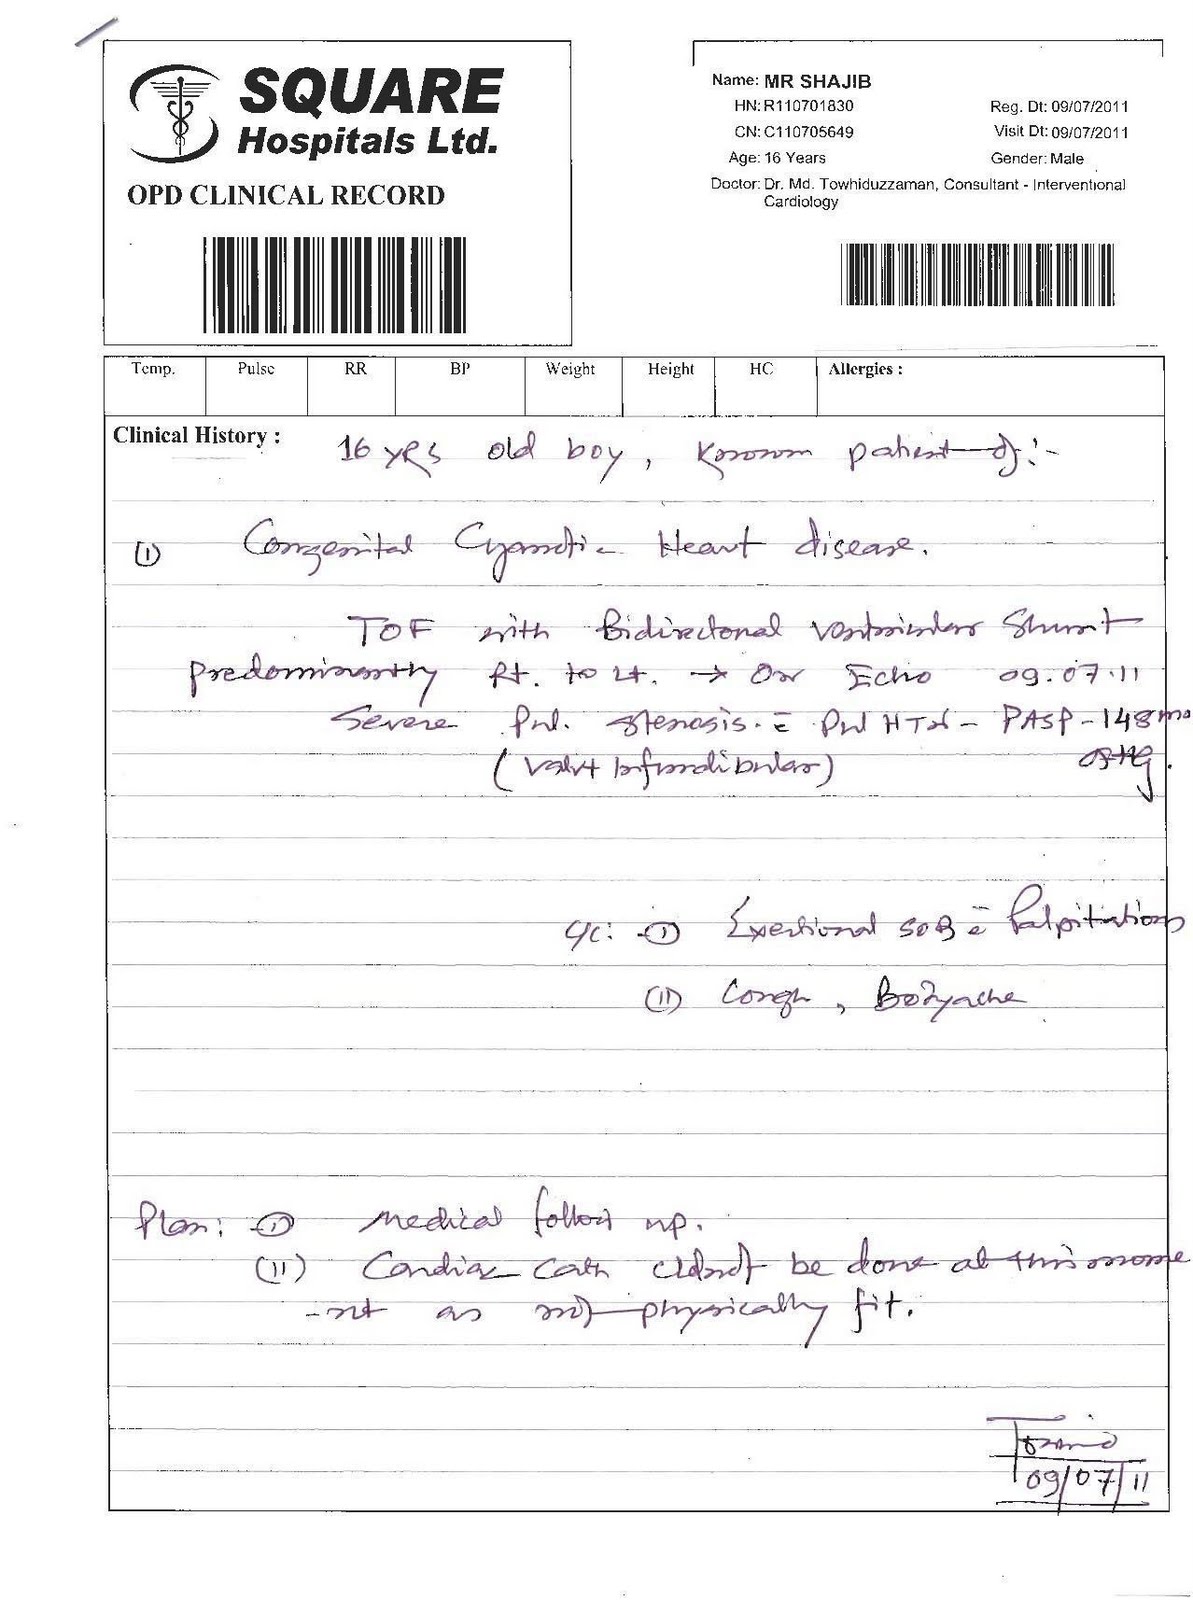 SQUARE
Hospitals Ltd.
OPD CLINICAL RECORD
Name: MR SHAJIB
HN: R110701830 Reg. Dt: 09/07/2011
CN: C110705649 Visit Dt: 09/07/2011
Age: 16 Years Gender: Male
Doctor: Dr. Md. Towhiduzzaman, Consultant - Interventional
Cardiology
Temp. Pulse RR BP Weight Height HC Allergies :
Clinical History : 16 yrs old boy, Known patient of:-
(I) Congenital Cyanotic Heart disease.
TOF with Bidirectonal ventricular Shunt
predominantly Rt. to Lt. → On Echo 09.07.11
Severe Pul. stenosis. c̄ Pul HTN - PASP - 148mm
(Valv+Infundibular) of Hg.
C/C: (I) Exertional SOB c̄ Palpitations
(II) Cough, Bodyache
Plan: (I) Medical follow up.
(II) Cardiac Cath cldnot be done at this mome
-nt as not physically fit.
09/07/11